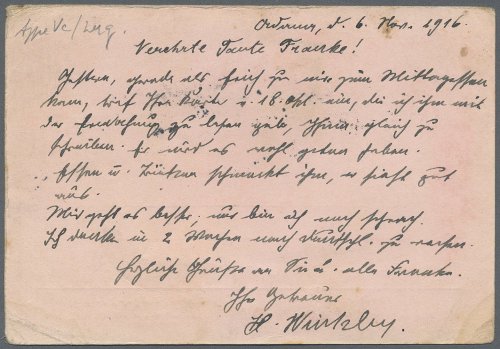 Type Vc/Lug.
d. 6. Nov. 1916.
Verehrte Tante Franke!
Gestern, gerade als Erich zu mir zum Mittagessen
kam, traf Ihre Karte v. 18. Okt. ein, die ich ihm mit
der Ermahnung zu lesen gab, Ihnen gleich zu
schreiben. Er wird es wohl getan haben.
Essen u. Trinken schmeckt ihm, er sieht gut
aus.
Mir geht es besser, nur bin ich noch schwach.
Ich denke in 2 Wochen nach Deutschl. zu reisen.
Herzliche Grüße an Sie u. alle Franke.
Ihr getreuer
H.